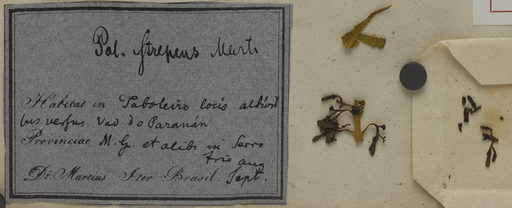 Pal. strepens Mart.
Habitat in Taboleiro locis altiori
bus versus Vao do Paranán
Provinciae M. G. et alibi in Serro
frio Aug
Dr. Martius Iter Brasil. Sept.